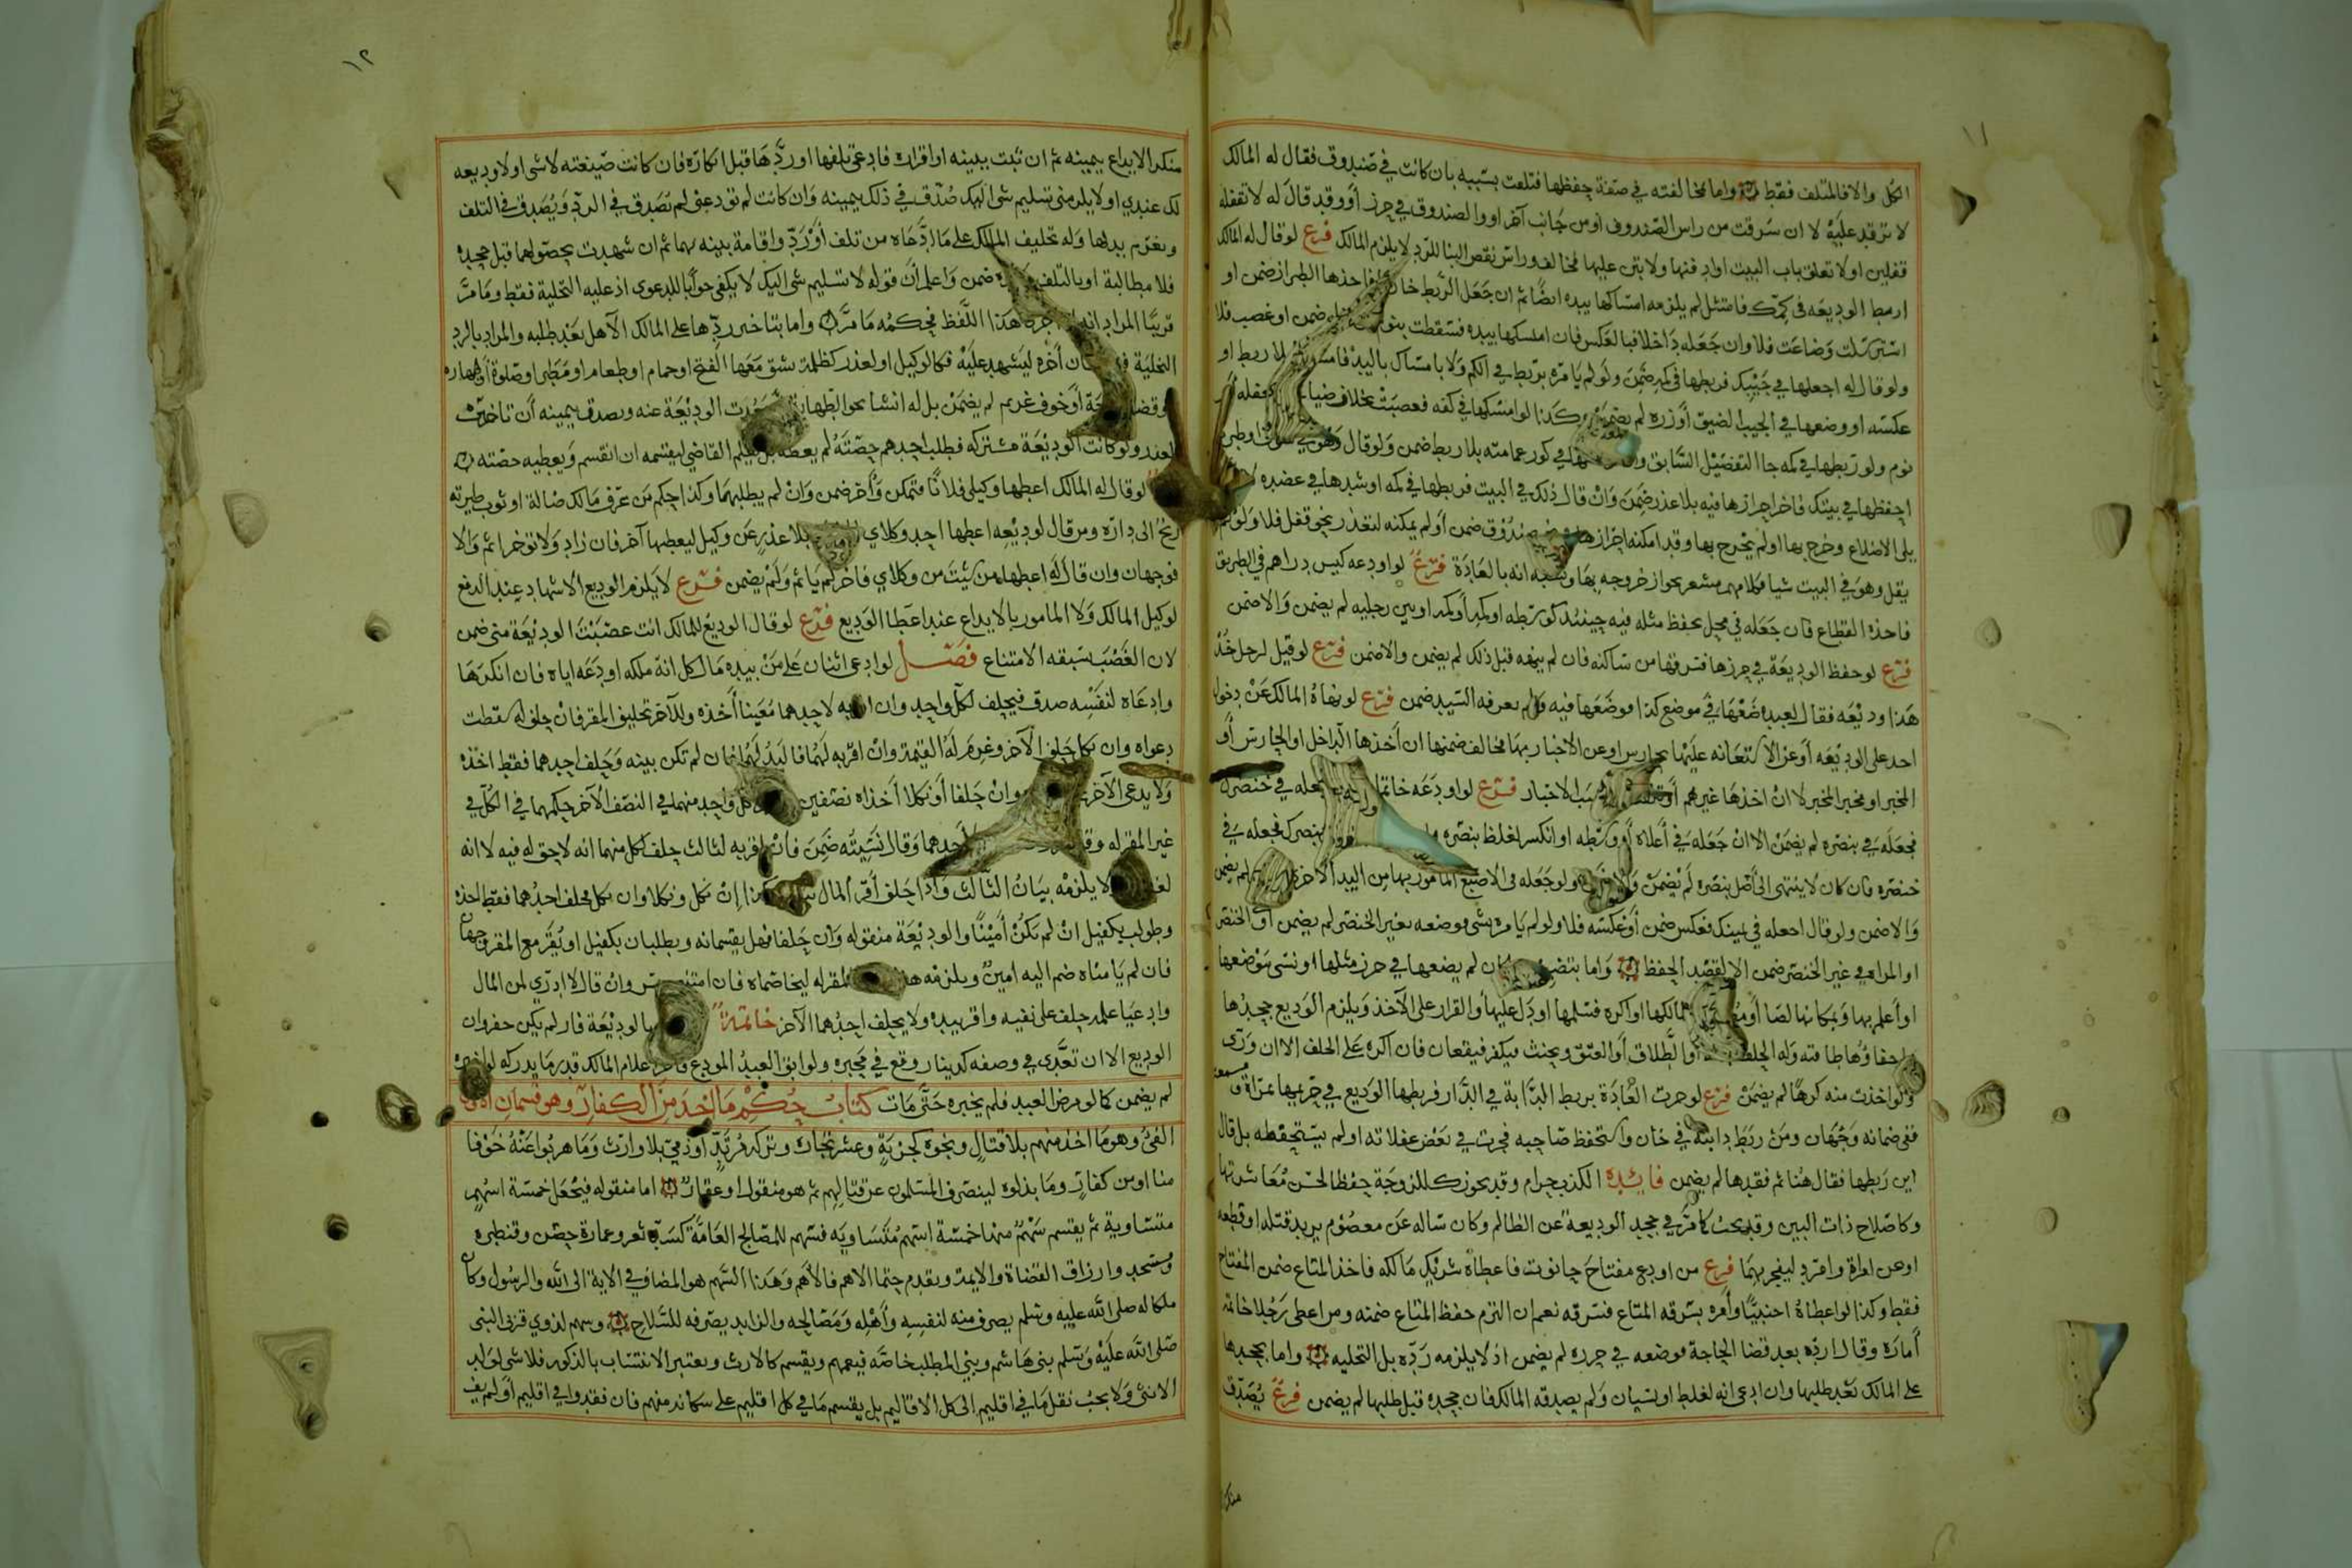 ١١
الكل والا فالمتلف فقط واما مخالفته في صفة حفظها فتلفت بسببه بان كانت في صندوق فقال له المالك
لا ترقد عليه لا ان سرقت من راس الصندوق او من جانب آخر او والصندوق في حرز أو وقد قال له لا تقفله
قفلين او لا تغلق باب البيت او ادفنها ولا تبن عليها فخالف وراش نقص البنا للرد لا يلزم المالك فرع لو قال له المالك
اربط الوديعه في كمك فامتثل لم يلزمه امساكها بيده ايضا ثم ان جعل الربط فاخذها الطرار ضمن او
استرسلت وضاعت فلا وان جعله داخلا فبالعكس فان امسكها بيده فسقطت بنوم ضمن او غصب فلا
ولو قال له اجعلها في جيبك فربطها في كمه ضمن ولو لم يامره بربط في الكم ولا بامساك باليد لم يلا ربط او
عكسه او وضعها في الجيب الضيق أو زره لم يضمن كذا لو امسكها في كفه فغصبت بخلاف ضيا
نوم ولو ربطها في كمه جا التفضيل السابق في كور عمامته بلا ربط ضمن ولو قال وهو في سوق او طريق
احفظها في بيتك فاخر احرازها فيه بلا عذر ضمن وان قال ذلك في البيت فربطها في كمه او شدها في عضده
يلي الاضلاع وخرج بها او لم يخرج بها وقد امكنه احرازها صندوق ضمن أو لم يمكنه لتعذر نحو قفل فلا ولو لم
يقل وهو في البيت شيا فكلامهم مشعر بجواز خروجه بها انه بالعادة فرع لو اودعه كيس دراهم في الطريق
فاخذه القطاع فان جعله في محل يحفظ مثله فيه حينئذ كوسطه او كمه او بين رجليه لم يضمن والا ضمن
فرع لو حفظ الوديعة في حرزها فسرقها من ساكنه فان لم يتهمه قبل ذلك لم يضمن والا ضمن فرع لو قيل لرجل خذ
هذا وديعه فقال لعبده ضعها في موضع كذا فوضعها فيه ولم يعرفه السيد ضمن فرع لو نهاه المالك عن دخول
احد على الوديعه أو عن الاستعانه عليها بحارس او عن الاخبار بها فخالف ضمنها ان أخذها الداخل او الحارس أو
المخبر او مخبر المخبر لا ان اخذها غيرهم بسبب الاخبار فرع لو اودعه خاتما يجعله في خنصره
فجعله في بنصره لم يضمن الا ان جعله في أعلاه أو وسطه او انكسر لغلظ بنصره بنصرك فجعله في
خنصره فان كان لا ينتهي الى أصل بنصره لم يضمن ولو جعله في الاصبع المامور بها من اليد الأخرى لم يضمن
والا ضمن ولو قال اجعله في يمينك فعكس ضمن أو عكسه فلا ولو لم يامره بشي فوضعه بغير الخنصر لم يضمن أو الخنصر
او المراة في غير الخنصر ضمن الا لقصد الحفظ واما بتضييع كان لم يضعها في حرز مثلها او نسي موضعها
او أعلم بها وبمكانها لصا أو مالكها او اكره فسلمها او دل عليها والقرار على الآخذ ويلزم الوديع جحدها
واخفاؤها طاقته وله الحلف أو الطلاق أو العتق ويحنث فيكفر فيقعان فان اكره على الحلف الا ان ورى
ولو اخذت منه كرها لم يضمن فرع لو جرت العادة بربط الدابة في الدار فربطها الوديع في حريمها بمراة و
ففي ضمانه وجهان ومن ربط دابته في خان واستحفظ صاحبه فخرجت في بعض غفلاته او لم يستحفظه بل قال
اين ربطها فقال هنا ثم فقدها لم يضمن فايده الكذب حرام وقد يجوز كللزوجة حفظا لحسن معاشرتها
وكاصلاح ذات البين وقد يجب كما مر في جحد الوديعة عن الظالم وكان ساله عن معصوم يريد قتله او قطعه
او عن امراة وامرد ليفجر بهما فرع من اودع مفتاح حانوت فاعطاه شريك مالكه فاخذ المتاع ضمن المفتاح
فقط وكذا لو اعطاه اجنبيا وأمره بسرقه المتاع فسرقه نعم ان التزم حفظ المتاع ضمنه ومن اعطى رجلا خاتمه
أمارة وقال رده بعد قضا الحاجة فوضعه في حرزه لم يضمن اذ لا يلزمه رده بل التخليه واما بجحدها
على المالك بعد طلبها وان ادعى انه لغلط او نسيان ولم يصدقه المالك فان جحده قبل طلبها لم يضمن فرع يصدق
منكر
١٢
منكر الايداع بيمينه ثم ان ثبت ببينه او اقراره فادعى تلفها او ردها قبل انكاره فان كانت صيغته لا شي او لا وديعه
لك عندي او لا يلزمني تسليم شي اليك صدق في ذلك بيمينه وان كانت لم تودعني لم يصدق في الرد ويصدق في التلف
ويغرم بدلها وله تحليف المالك على ما ادعاه من تلف أو رد واقامة بينه بهما ثم ان شهدت بحصولهما قبل جحده
فلا مطالبة او بالتلف بعده ضمن واعلم أن قوله لا تسليم شي اليك لا يكفي جوابا للدعوى اذ عليه التخلية فقط وما مر
قريبا المراد انه هذا اللفظ فحكمه ما مر واما بتاخير ردها على المالك الآهل بعد طلبه والمراد بالرد
التخلية كان أخره ليشهد عليه فكالوكيل او لعذر كظلمة يشق معها الفتح او حمام او طعام او مطر او صلوة أو طهارة
وقضا حاجة أو خوف غريم لم يضمن بل له انشا نحو الطهارة الوديعة عنه ويصدق بيمينه أن تاخيره
لعذر ولو كانت الوديعة مشتركه فطلب احدهم حصته لم يعطه بل يعلم القاضي ليقسمه ان انقسم ويعطيه حصته
لو قال له المالك اعطها وكيلي فلانا فتمكن وأخر ضمن وان لم يطلبها وكذا حكم من عرف مالك ضالة او ثوب طيرته
الريح الى داره ومن قال لوديعه اعطها احد وكلاي بلا عذر عن وكيل ليعطها آخر فان زاد ولا توخر اثم والا
فوجهان وان قال له اعطها من شيت من وكلاي فاخر لم ياثم ولم يضمن فرع لا يلزم الوديع الاشهاد عند الدفع
لوكيل المالك ولا المامور بالايداع عند اعطا الوديع فرع لو قال الوديع للمالك انت غصبت الوديعة مني ضمن
لان الغصب سبقه الامتناع فصل لو ادعى اثنان على من بيده مال كل انه ملكه اودعه اياه فان انكرها
وادعاه لنفسه صدق فيحلف لكل واحد وان اقر به لاحدهما معينا أخذه وللآخر تحليف المقر فان حلف له سقطت
دعواه وان نكل حلف الآخر وغرم له القيمة وان اقر به لهما فاليد لهما فان لم تكن بينه وحلف احدهما فقط اخذه
ولا يدعى الآخر وان حلفا أو نكلا أخذاه نصفين كل واحد منهما في النصف الآخر حكمهما في الكل في
غير المقر له احدهما وقال نسيته ضمن فان اقر به لثالث حلف لكل منهما انه لا حق له فيه لا انه
لا يلزمه بيان الثالث واذا حلف أقر المال ان نكل ونكلا وان نكل فحلف احدهما فقط اخذه
وطولب بكفيل ان لم تكن أمينا والوديعة منقوله وان حلفا فهل يقسمانه ويطلبان بكفيل او يقر مع المقر وجهان
فان لم يامناه ضم اليه امين ويلزمه المقر له ليخاصماه فان امتنع وان قال لا ادري لمن المال
وادعيا علمه حلف على نفيه واقر بيده ولا يحلف احدهما الآخر خاتمة الوديعة فان لم يكن حفر وان
الوديع الا ان تعدى في وصفه كدينار وقع في محبره ولو ابق العبد المودع فاخر اعلام المالك قدر ما يدركه لو اخبره
لم يضمن كما لو مرض العبد فلم يخبره حتى مات كتاب حكم ما اخذ من الكفار وهو قسمان
الفئ وهو ما اخذ منهم بلا قتال ونحوه كجزية وعشر تجارة وتركة مرتد أو ذمي بلا وارث وما هربوا عنه خوفا
منا او من كفار وما بذلوه لينصرف المسلمون عن قتالهم ثم هو منقول او عقار اما منقوله فيجعل خمسة اسهم
متساوية ثم يقسم سهم منها خمسة اسهم متساويه فسهم للمصالح العامة كسد ثغر وعمارة حصن وقنطرة
ومسجد وارزاق القضاة والايمة ويقدم حتما الاهم فالاهم وهذا السهم هو المضاف في الاية الى الله والرسول وكان
ملكا له صلى الله عليه وسلم يصرف منه لنفسه وأهله ومصالحه والزايد يصرفه للسلاح وسهم لذوي قربى النبي
صلى الله عليه وسلم بني هاشم وبني المطلب خاصه فيعمهم ويقسم كالارث ويعتبر الانتساب بالذكور فلا شي لولد
الانثى ولا يجب نقل ما في اقليم الى كل الاقاليم بل يقسم ما في كل اقليم على سكانه منهم فان فقدوا في اقليم أو لم يف